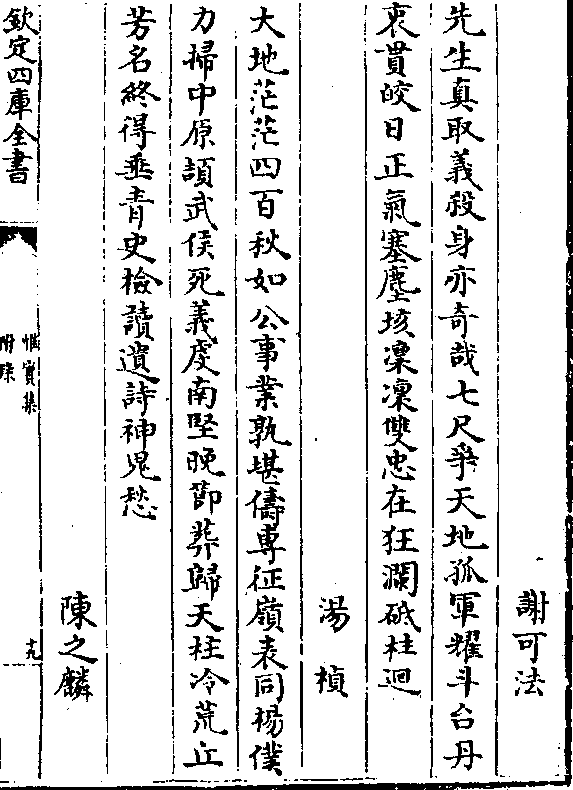 謝可法
先生真取義殺身亦奇哉七尺爭天地孤軍耀斗台丹
衷貫皎日正氣塞塵垓凜凜雙忠在狂瀾砥柱迴
湯楨
大地茫茫四百秋如公事業孰堪儔専征嶺表同楊僕
力掃中原頡武侯死義虔南堅晚節葬歸天柱冷荒丘
芳名終得垂青史檢讀遺詩神鬼愁
陳之麟
欽定四庫全書
實集
附錄
十九